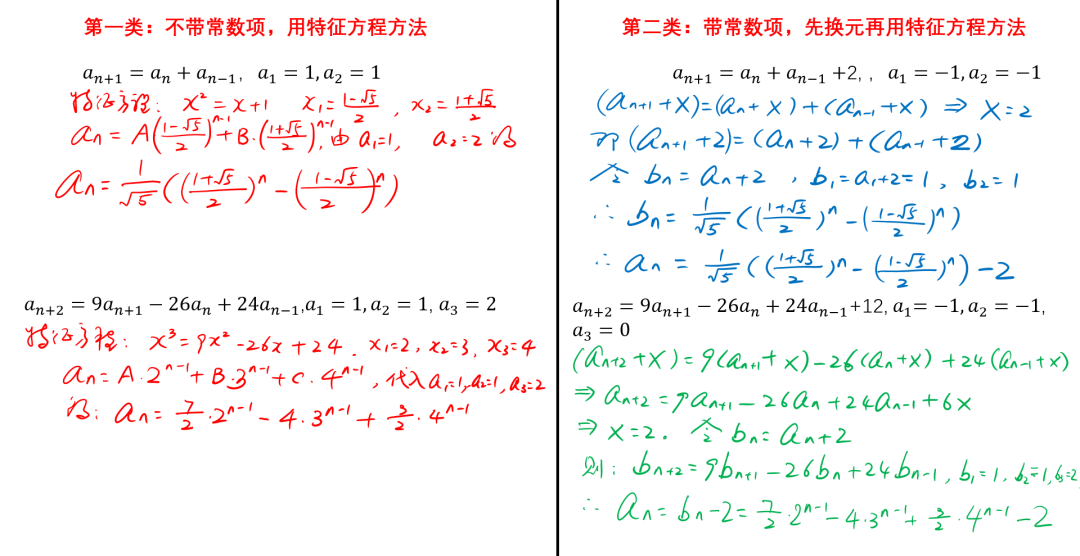 第一类：不带常数项，用特征方程方法
a_{n+1} = a_n + a_{n-1}, a_1 = 1, a_2 = 1
特征方程: x² = x+1 x_1 = \frac{1-√5}{2}, x_2 = \frac{1+√5}{2}
a_n = A(\frac{1-√5}{2})^{n-1} + B·(\frac{1+√5}{2})^{n-1}, 由 a_1=1, a_2=2 得
a_n = \frac{1}{√5}((\frac{1+√5}{2})^n - (\frac{1-√5}{2})^n)
a_{n+2} = 9a_{n+1} − 26a_n + 24a_{n-1}, a_1 = 1, a_2 = 1, a_3 = 2
特征方程: x³ = 9x² - 26x + 24. x_1=2, x_2=3, x_3=4
a_n = A·2^{n-1} + B·3^{n-1} + C·4^{n-1}, 代入 a_1=1, a_2=1, a_3=2
得: a_n = \frac{7}{2}·2^{n-1} - 4·3^{n-1} + \frac{3}{2}·4^{n-1}
第二类：带常数项，先换元再用特征方程方法
a_{n+1} = a_n + a_{n-1} +2, , a_1 = −1, a_2 = −1
(a_{n+1}+x) = (a_n+x) + (a_{n-1}+x) ⇒ x=2
即 (a_{n+1}+2) = (a_n+2) + (a_{n-1}+2)
令 b_n = a_n+2, b_1 = a_1+2 = 1, b_2 = 1
∴ b_n = \frac{1}{√5}((\frac{1+√5}{2})^n - (\frac{1-√5}{2})^n)
∴ a_n = \frac{1}{√5}((\frac{1+√5}{2})^n - (\frac{1-√5}{2})^n) - 2
a_{n+2} = 9a_{n+1} − 26a_n + 24a_{n-1}+12, a_1 = −1, a_2 = −1,
a_3 = 0
(a_{n+2}+x) = 9(a_{n+1}+x) - 26(a_n+x) + 24(a_{n-1}+x)
⇒ a_{n+2} = 9a_{n+1} - 26a_n + 24a_{n-1} + 6x
⇒ x=2. 令 b_n = a_n+2
则: b_{n+2} = 9b_{n+1} - 26b_n + 24b_{n-1}, b_1=1, b_2=1, b_3=2
∴ a_n = b_n-2 = \frac{7}{2}·2^{n-1} - 4·3^{n-1} + \frac{3}{2}·4^{n-1} - 2